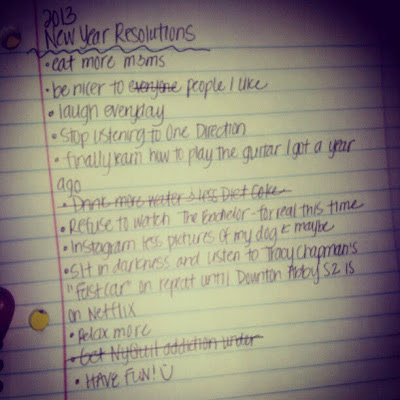 2013
New Year Resolutions
• eat more m&ms
• be nicer to everyone people I like
• laugh everyday
• Stop listening to One Direction
• finally learn how to play the guitar I got a year
ago
• Drink more water & less Diet Coke
• Refuse to watch The Bachelor - for real this time
• Instagram less pictures of my dog ← maybe
• Sit in darkness and listen to Tracy Chapman's
"Fastcar" on repeat until Downton Abby S2 is
on Netflix
• Relax more
• Get NyQuil addiction under
• HAVE FUN!